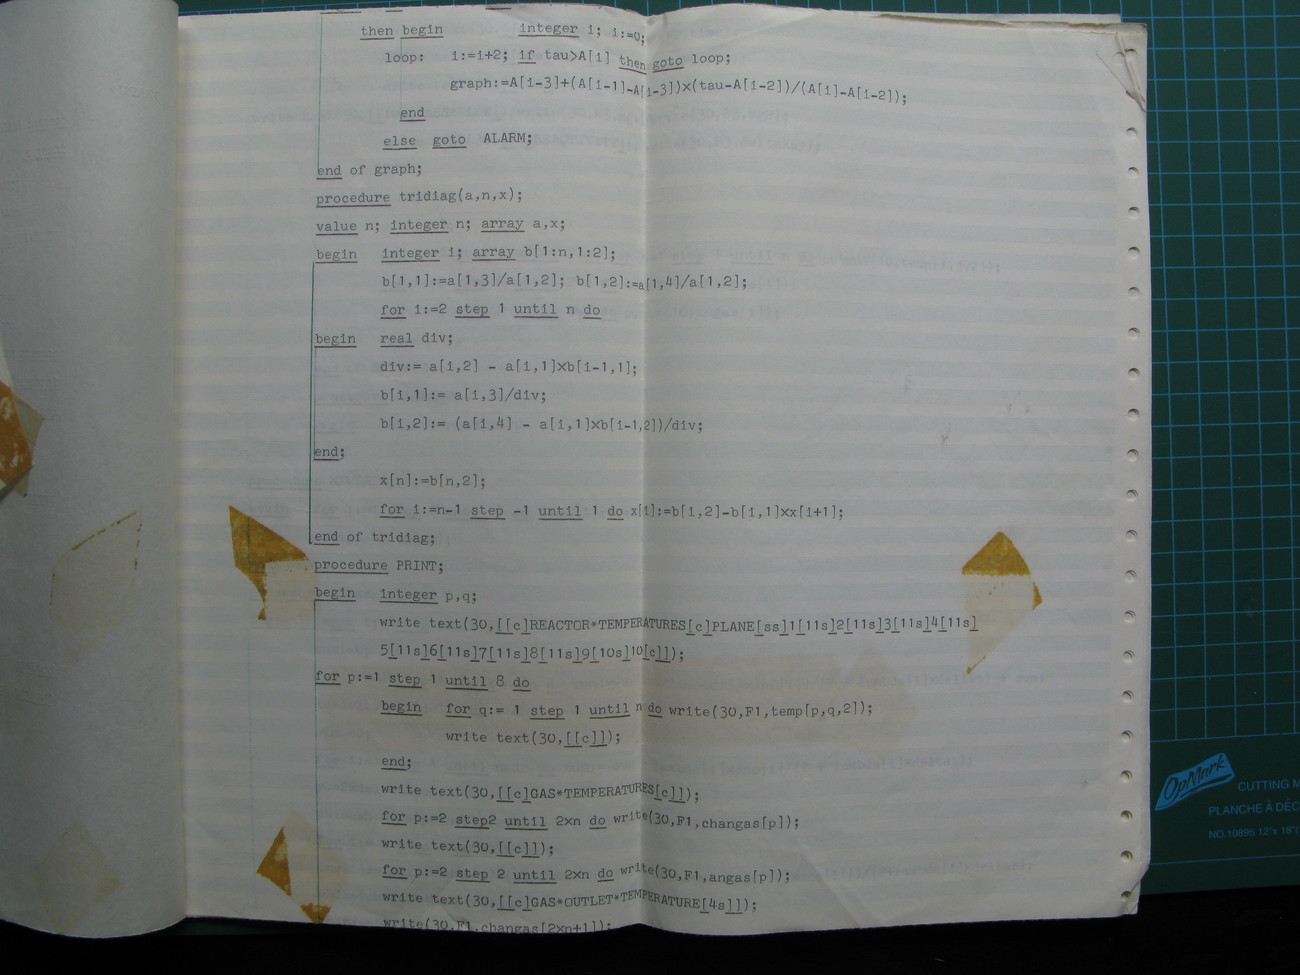 then begin integer i; i:=0;
loop: i:=i+2; if tau>A[i] then goto loop;
graph:=A[i-3]+(A[i-1]-A[i-3])×(tau-A[i-2])/(A[i]-A[i-2]);
end
else goto ALARM;
end of graph;
procedure tridiag(a,n,x);
value n; integer n; array a,x;
begin integer i; array b[1:n,1:2];
b[1,1]:=a[1,3]/a[1,2]; b[1,2]:=a[1,4]/a[1,2];
for i:=2 step 1 until n do
begin real div;
div:= a[i,2] - a[i,1]×b[i-1,1];
b[i,1]:= a[i,3]/div;
b[i,2]:= (a[i,4] - a[i,1]×b[i-1,2])/div;
end;
x[n]:=b[n,2];
for i:=n-1 step -1 until 1 do x[i]:=b[i,2]-b[i,1]×x[i+1];
end of tridiag;
procedure PRINT;
begin integer p,q;
write text(30,[[c]REACTOR*TEMPERATURES[c]PLANE[ss]1[11s]2[11s]3[11s]4[11s]
5[11s]6[11s]7[11s]8[11s]9[10s]10[c]]);
for p:=1 step 1 until 8 do
begin for q:= 1 step 1 until n do write(30,F1,temp[p,q,2]);
write text(30,[[c]]);
end;
write text(30,[[c]GAS*TEMPERATURES[c]]);
for p:=2 step2 until 2×n do write(30,F1,changas[p]);
write text(30,[[c]]);
for p:=2 step 2 until 2×n do write(30,F1,angas[p]);
write text(30,[[c]GAS*OUTLET*TEMPERATURE[4s]]);
write(30,F1,changas[2×n+1]);
OpMark
CUTTING M
PLANCHE À DÉC
NO.10895 12"x 18"(